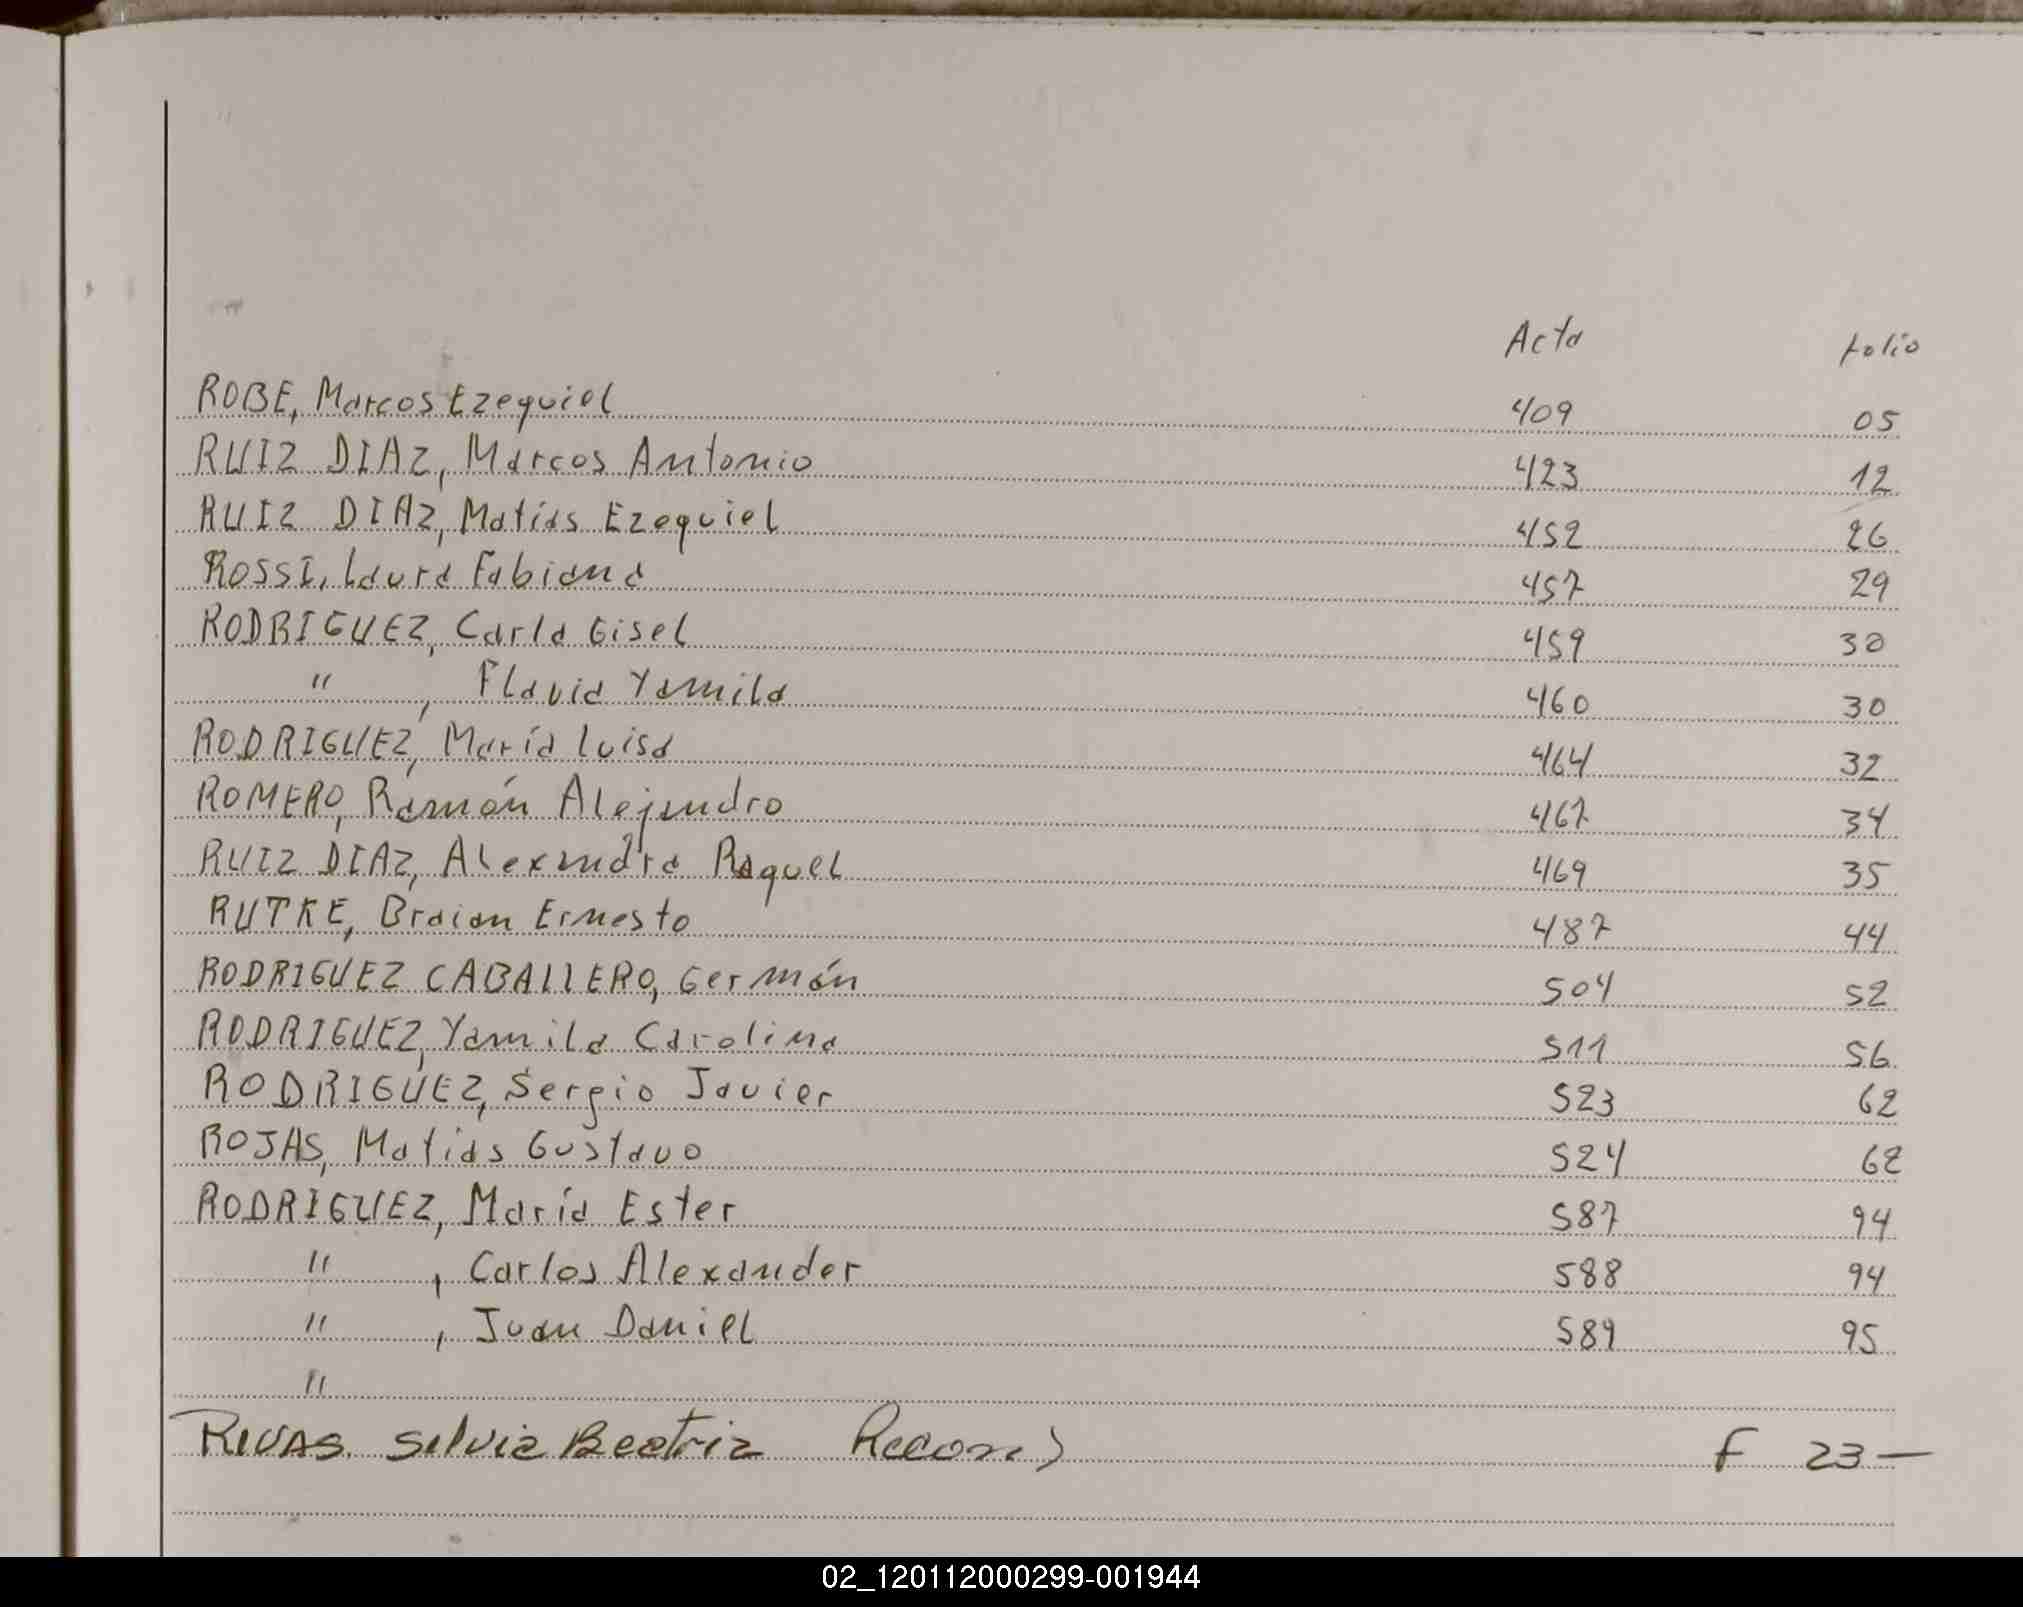 Acta folio
ROBE, Marcos Ezequiel 409 05
RUIZ DIAZ, Marcos Antonio 423 12
RUIZ DIAZ, Matías Ezequiel 452 26
ROSSI, Laura Fabiana 457 29
RODRIGUEZ, Carla Gisel 459 30
" , Flavia Yamila 460 30
RODRIGUEZ, María Luisa 464 32
ROMERO, Ramón Alejandro 467 34
RUIZ DIAZ, Alexandra Raquel 469 35
RUTKE, Braian Ernesto 487 44
RODRIGUEZ CABALLERO, Germán 504 52
RODRIGUEZ, Yamila Carolina 511 56
RODRIGUEZ, Sergio Javier 523 62
ROJAS, Matias Gustavo 524 62
RODRIGUEZ, María Ester 587 94
" , Carlos Alexander 588 94
" , Juan Daniel 589 95
"
RIVAS. Silvia Beatriz Recon) F 23-
02_120112000299-001944